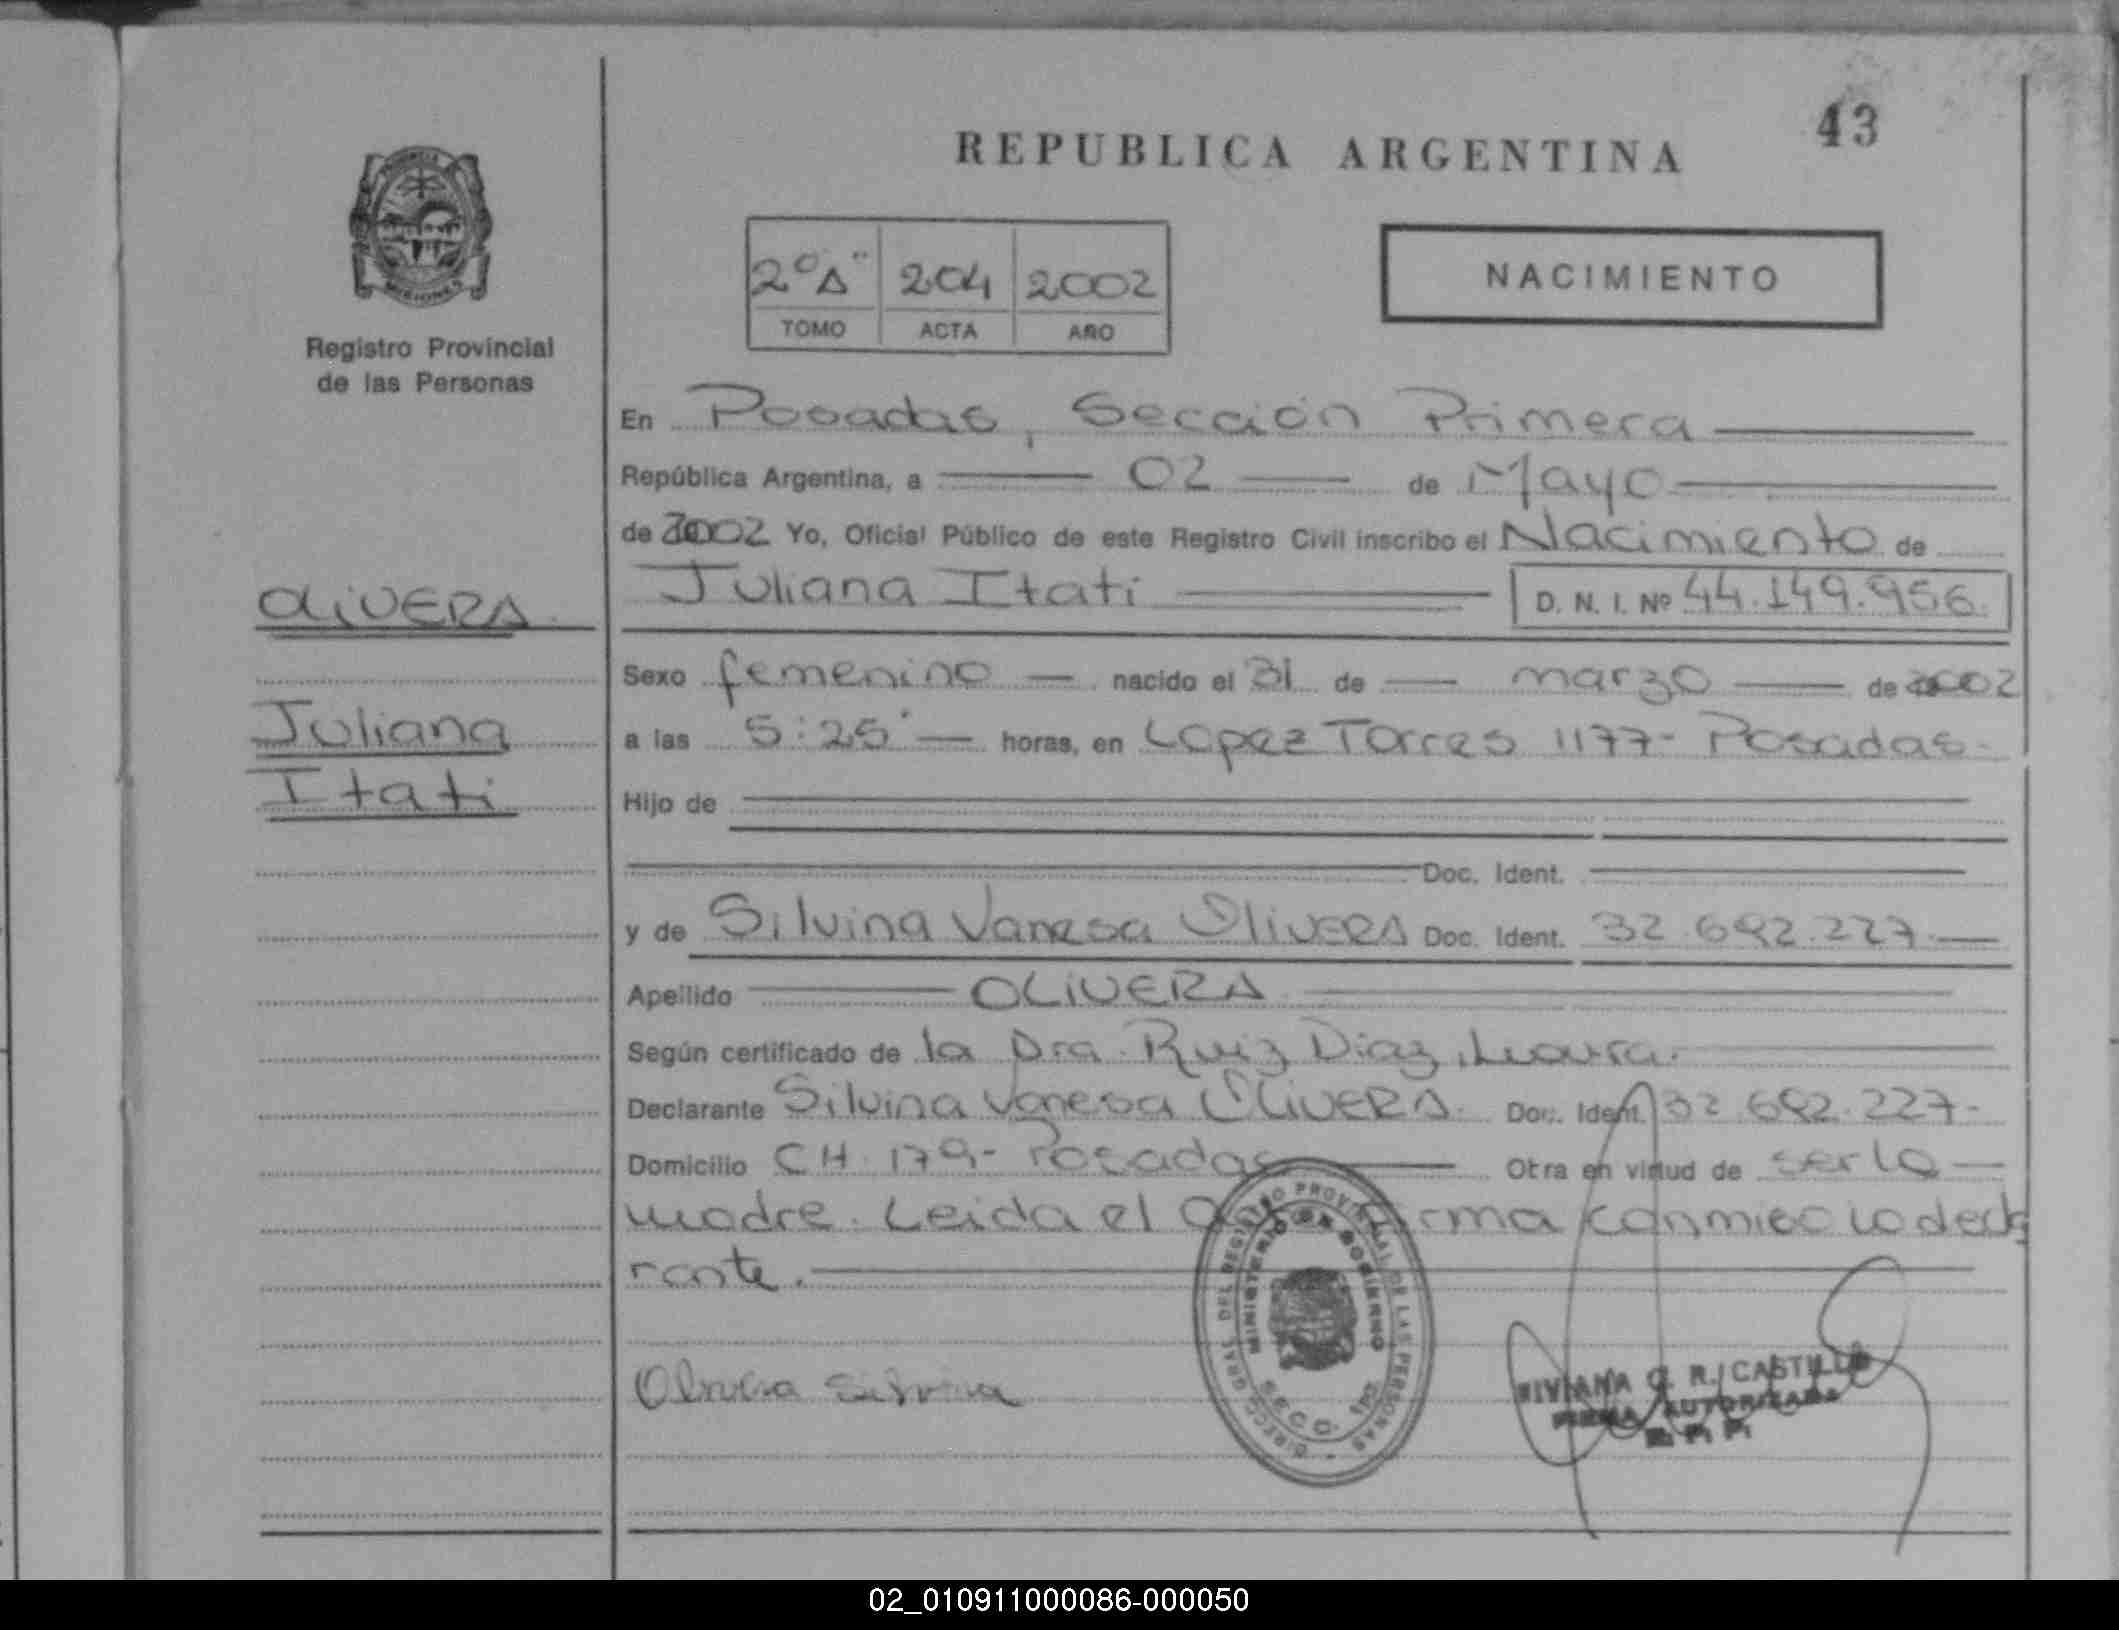 43
REPUBLICA ARGENTINA
2º A" 204 2002
TOMO ACTA AÑO
NACIMIENTO
MISIONES
Registro Provincial
de las Personas
En Posadas, Sección Primera
República Argentina, a 02 de Mayo
de 2002 Yo, Oficial Público de este Registro Civil inscribo el Nacimiento de
OLIVERA.
Juliana Itati D. N. I. Nº 44.149.956.
Sexo femenino nacido el 31 de marzo de 2002
Juliana
a las 5:25' horas, en Lopez Torres 1177- Posadas-
Itati
Hijo de
Doc. Ident.
y de Silvina Vanesa Olivera Doc. Ident. 32.692.227.
Apellido OLIVERA
Según certificado de la Dra. Ruiz Diaz, Laura.
Declarante Silvina Vanesa Olivera. Doc. Ident. 32 692.227-
Domicilio CH. 179- Posadas Otra en virtud de ser la
madre. Leida el firma conmigo la decla
rante.
Olivera Silvina
DIRECC. GRAL. DEL REGISTRO PROVINCIAL DE LAS PERSONAS
MINISTERIO DE GOBIERNO
SECC. 1ra
VIVIANA G. R. CASTILLO
FIRMA AUTORIZADA
R. P. P.
02_010911000086-000050